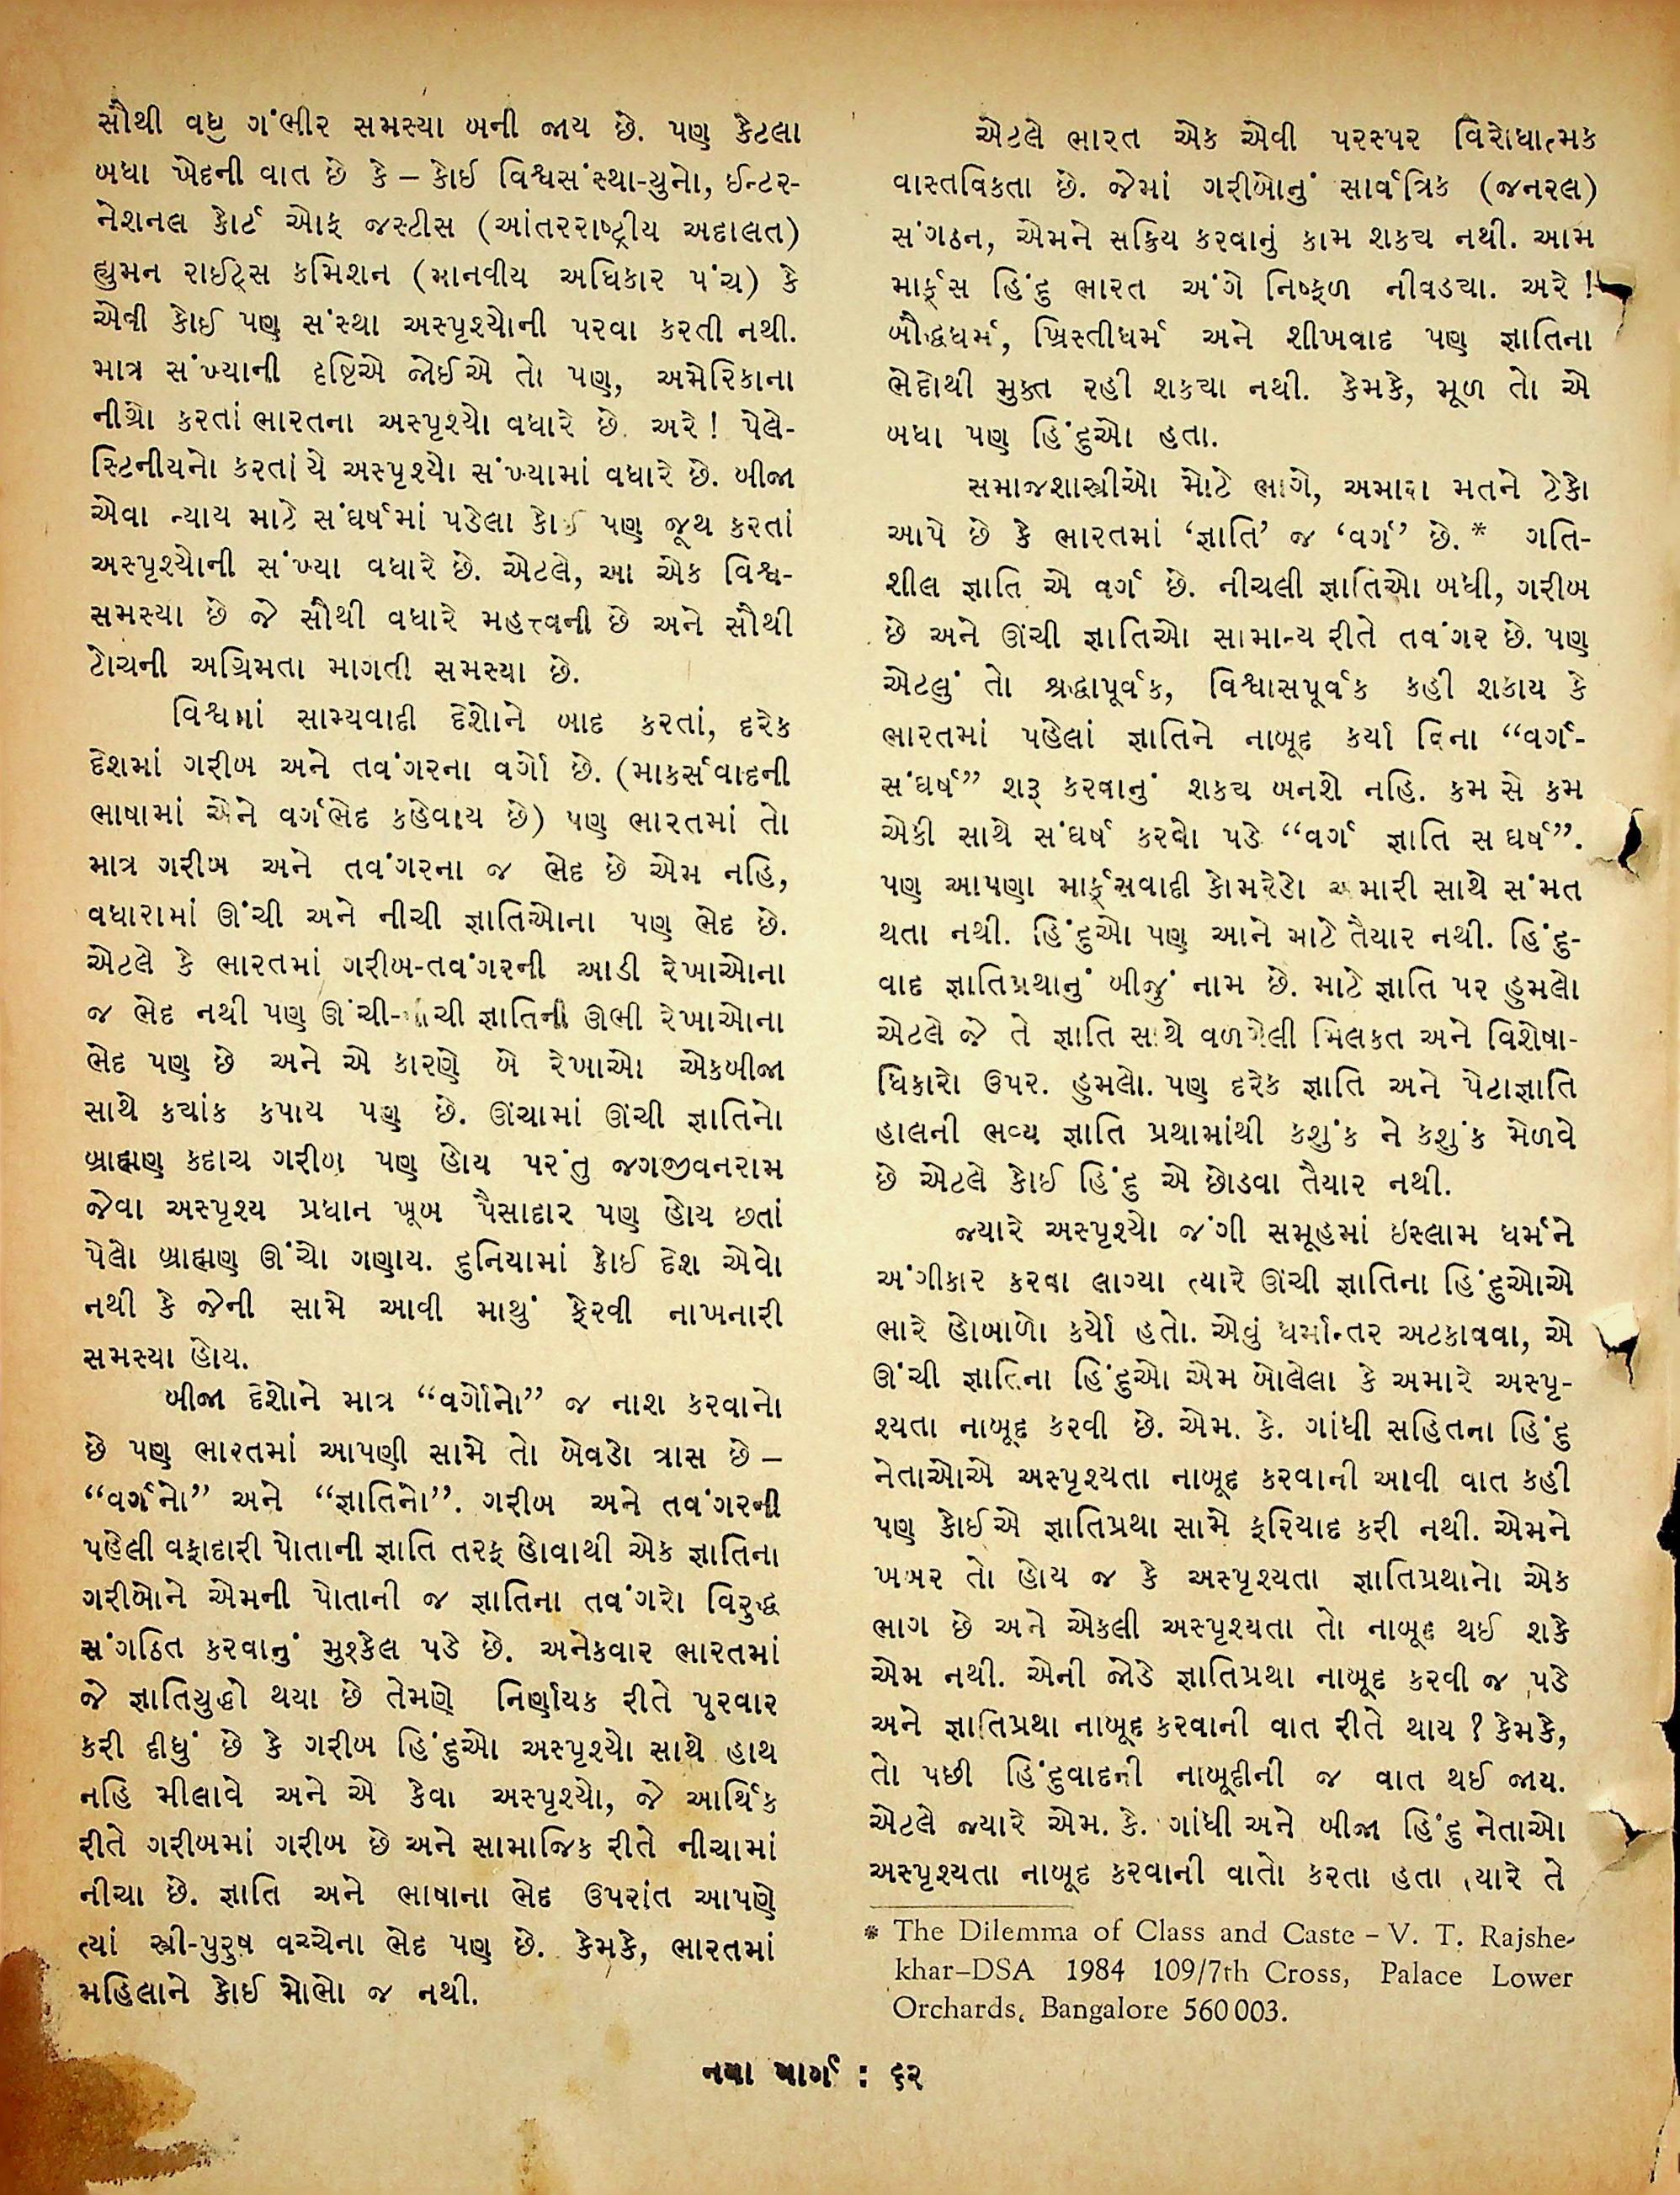 સૌથી વધુ ગંભીર સમસ્યા બની જાય છે. પણ કેટલા
બધા ખેદની વાત છે કે – કોઈ વિશ્વસંસ્થા-યુનો, ઈન્ટર-
નેશનલ કોર્ટ ઓફ જસ્ટીસ (આંતરરાષ્ટ્રીય અદાલત)
હ્યુમન રાઈટ્સ કમિશન (માનવીય અધિકાર પંચ) કે
એવી કોઈ પણ સંસ્થા અસ્પૃશ્યોની પરવા કરતી નથી.
માત્ર સંખ્યાની દૃષ્ટિએ જોઈએ તો પણ, અમેરિકાના
નીગ્રો કરતાં ભારતના અસ્પૃશ્યો વધારે છે. અરે! પેલે-
સ્ટિનીયનો કરતાં યે અસ્પૃશ્યો સંખ્યામાં વધારે છે. બીજા
એવા ન્યાય માટે સંઘર્ષમાં પડેલા કોઈ પણ જૂથ કરતાં
અસ્પૃશ્યોની સંખ્યા વધારે છે. એટલે, આ એક વિશ્વ-
સમસ્યા છે જે સૌથી વધારે મહત્ત્વની છે અને સૌથી
ટોચની અગ્રિમતા માગતી સમસ્યા છે.
વિશ્વમાં સામ્યવાદી દેશોને બાદ કરતાં, દરેક
દેશમાં ગરીબ અને તવંગરના વર્ગો છે. (માકર્સવાદની
ભાષામાં એને વર્ગભેદ કહેવાય છે) પણ ભારતમાં તો
માત્ર ગરીબ અને તવંગરના જ ભેદ છે એમ નહિ,
વધારામાં ઊંચી અને નીચી જ્ઞાતિઓના પણ ભેદ છે.
એટલે કે ભારતમાં ગરીબ-તવંગરની આડી રેખાઓના
જ ભેદ નથી પણ ઊંચી-નીચી જ્ઞાતિની ઊભી રેખાઓના
ભેદ પણ છે અને એ કારણે બે રેખાઓ એકબીજા
સાથે કયાંક કપાય પણ છે. ઊંચામાં ઊંચી જ્ઞાતિનો
બ્રાહ્મણ કદાચ ગરીબ પણ હોય પરંતુ જગજીવનરામ
જેવા અસ્પૃશ્ય પ્રધાન ખૂબ પૈસાદાર પણ હોય છતાં
પેલો બ્રાહ્મણ ઊંચો ગણાય. દુનિયામાં કોઈ દેશ એવો
નથી કે જેની સામે આવી માથું ફેરવી નાખનારી
સમસ્યા હોય.
બીજા દેશોને માત્ર “વર્ગોનો” જ નાશ કરવાનો
છે પણ ભારતમાં આપણી સામે તો બેવડો ત્રાસ છે –
“વર્ગનો” અને “જ્ઞાતિનો”. ગરીબ અને તવંગરની
પહેલી વફાદારી પોતાની જ્ઞાતિ તરફ હોવાથી એક જ્ઞાતિના
ગરીબોને એમની પોતાની જ જ્ઞાતિના તવંગરો વિરુદ્ધ
સંગઠિત કરવાનું મુશ્કેલ પડે છે. અનેકવાર ભારતમાં
જે જ્ઞાતિયુદ્ધો થયા છે તેમણે નિર્ણાયક રીતે પૂરવાર
કરી દીધું છે કે ગરીબ હિંદુઓ અસ્પૃશ્યો સાથે હાથ
નહિ મીલાવે અને એ કેવા અસ્પૃશ્યો, જે આર્થિક
રીતે ગરીબમાં ગરીબ છે અને સામાજિક રીતે નીચામાં
નીચા છે. જ્ઞાતિ અને ભાષાના ભેદ ઉપરાંત આપણે
ત્યાં સ્ત્રી-પુરુષ વચ્ચેના ભેદ પણ છે. કેમકે, ભારતમાં
મહિલાને કોઈ મોભો જ નથી.
એટલે ભારત એક એવી પરસ્પર વિરોધાત્મક
વાસ્તવિકતા છે. જેમાં ગરીબોનું સાર્વત્રિક (જનરલ)
સંગઠન, એમને સક્રિય કરવાનું કામ શકય નથી. આમ
માર્ક્સ હિંદુ ભારત અંગે નિષ્ફળ નીવડયા. અરે !
બૌદ્ધધર્મ, ખ્રિસ્તીધર્મ અને શીખવાદ પણ જ્ઞાતિના
ભેદોથી મુક્ત રહી શકયા નથી. કેમકે, મૂળ તો એ
બધા પણ હિંદુઓ હતા.
સમાજશાસ્ત્રીઓ મોટે ભાગે, અમારા મતને ટેકો
આપે છે કે ભારતમાં ‘જ્ઞાતિ’ જ ‘વર્ગ’ છે.* ગતિ-
શીલ જ્ઞાતિ એ વર્ગ છે. નીચલી જ્ઞાતિઓ બધી, ગરીબ
છે અને ઊંચી જ્ઞાતિઓ સામાન્ય રીતે તવંગર છે. પણ
એટલું તો શ્રદ્ધાપૂર્વક, વિશ્વાસપૂર્વક કહી શકાય કે
ભારતમાં પહેલાં જ્ઞાતિને નાબૂદ કર્યા વિના “વર્ગ-
સંઘર્ષ” શરૂ કરવાનું શકય બનશે નહિ. કમ સે કમ
એકી સાથે સંઘર્ષ કરવો પડે “વર્ગ જ્ઞાતિ સંઘર્ષ”.
પણ આપણા માર્ક્સવાદી કોમરેડો અમારી સાથે સંમત
થતા નથી. હિંદુઓ પણ આને માટે તૈયાર નથી. હિંદુ-
વાદ જ્ઞાતિપ્રથાનું બીજું નામ છે. માટે જ્ઞાતિ પર હુમલો
એટલે જે તે જ્ઞાતિ સાથે વળગેલી મિલકત અને વિશેષા-
ધિકારો ઉપર. હુમલો. પણ દરેક જ્ઞાતિ અને પેટાજ્ઞાતિ
હાલની ભવ્ય જ્ઞાતિ પ્રથામાંથી કશુંક ને કશુંક મેળવે
છે એટલે કોઈ હિંદુ એ છોડવા તૈયાર નથી.
જ્યારે અસ્પૃશ્યો જંગી સમૂહમાં ઇસ્લામ ધર્મને
અંગીકાર કરવા લાગ્યા ત્યારે ઊંચી જ્ઞાતિના હિંદુઓએ
ભારે હોબાળો કર્યો હતો. એવું ધર્માન્તર અટકાવવા, એ
ઊંચી જ્ઞાતિના હિંદુઓ એમ બોલેલા કે અમારે અસ્પૃ-
શ્યતા નાબૂદ કરવી છે. એમ. કે. ગાંધી સહિતના હિંદુ
નેતાઓએ અસ્પૃશ્યતા નાબૂદ કરવાની આવી વાત કહી
પણ કોઈએ જ્ઞાતિપ્રથા સામે ફરિયાદ કરી નથી. એમને
ખબર તો હોય જ કે અસ્પૃશ્યતા જ્ઞાતિપ્રથાનો એક
ભાગ છે અને એકલી અસ્પૃશ્યતા તો નાબૂદ થઈ શકે
એમ નથી. એની જોડે જ્ઞાતિપ્રથા નાબૂદ કરવી જ પડે
અને જ્ઞાતિપ્રથા નાબૂદ કરવાની વાત રીતે થાય ? કેમકે,
તો પછી હિંદુવાદની નાબૂદીની જ વાત થઈ જાય.
એટલે જ્યારે એમ. કે. ગાંધી અને બીજા હિંદુ નેતાઓ
અસ્પૃશ્યતા નાબૂદ કરવાની વાતો કરતા હતા ત્યારે તે
* The Dilemma of Class and Caste – V. T. Rajshe-
khar–DSA 1984 109/7th Cross, Palace Lower
Orchards, Bangalore 560 003.
નયા માર્ગ : ૬૨